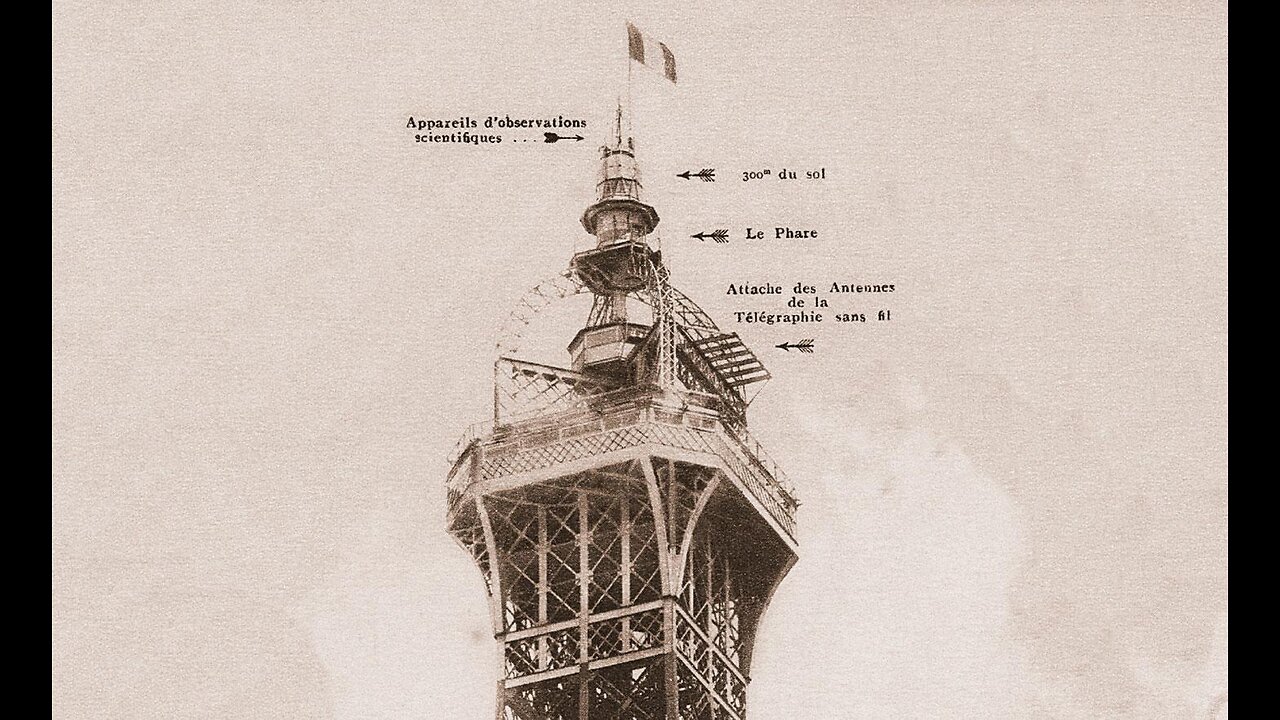 Appareils d'observations
scientifiques ...
300m du sol
Le Phare
Attache des Antennes
de la
Télégraphie sans fil